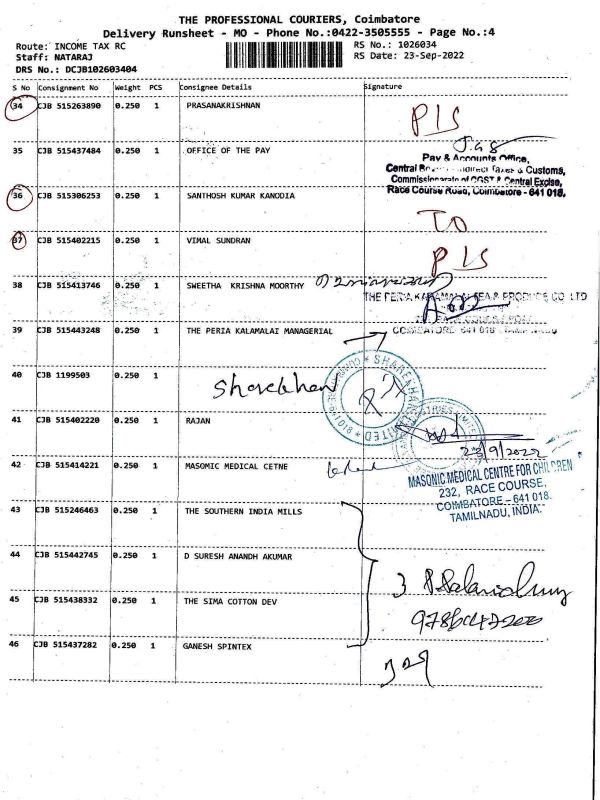 THE PROFESSIONAL COURIERS, Coimbatore
Delivery Runsheet - MO - Phone No.:0422-3505555 - Page No.:4
Route: INCOME TAX RC
RS No.: 1026034
Staff: NATARAJ
RS Date: 23-Sep-2022
DRS No.: DCJB102603404
S No Consignment No Weight PCS Consignee Details Signature
34 CJB 515263890 0.250 1 PRASANAKRISHNAN
P/S
35 CJB 515437484 0.250 1 OFFICE OF THE PAY
Pay & Accounts Office,
Central Indirect Taxes & Customs,
Commissionerate of CGST & Central Excise,
Race Course Road, Coimbatore - 641 018.
36 CJB 515306253 0.250 1 SANTHOSH KUMAR KANODIA
TO
37 CJB 515402215 0.250 1 VIMAL SUNDRAN
P/S
38 CJB 515413746 0.250 1 SWEETHA KRISHNA MOORTHY
THE PERIA KARAMALAI TEA & PRODUCE CO LTD
39 CJB 515443248 0.250 1 THE PERIA KALAMALAI MANAGERIAL
COIMBATORE- 641 018
40 CJB 1199503 0.250 1
Sharekhan
SHAREKHAN LIMITED
41 CJB 515402220 0.250 1 RAJAN
23/9/2022
42 CJB 515414221 0.250 1 MASOMIC MEDICAL CETNE
MASONIC MEDICAL CENTRE FOR CHILDREN
232, RACE COURSE,
COIMBATORE - 641 018.
TAMILNADU, INDIA.
43 CJB 515246463 0.250 1 THE SOUTHERN INDIA MILLS
44 CJB 515442745 0.250 1 D SURESH ANANDH AKUMAR
3
45 CJB 515438332 0.250 1 THE SIMA COTTON DEV
46 CJB 515437282 0.250 1 GANESH SPINTEX